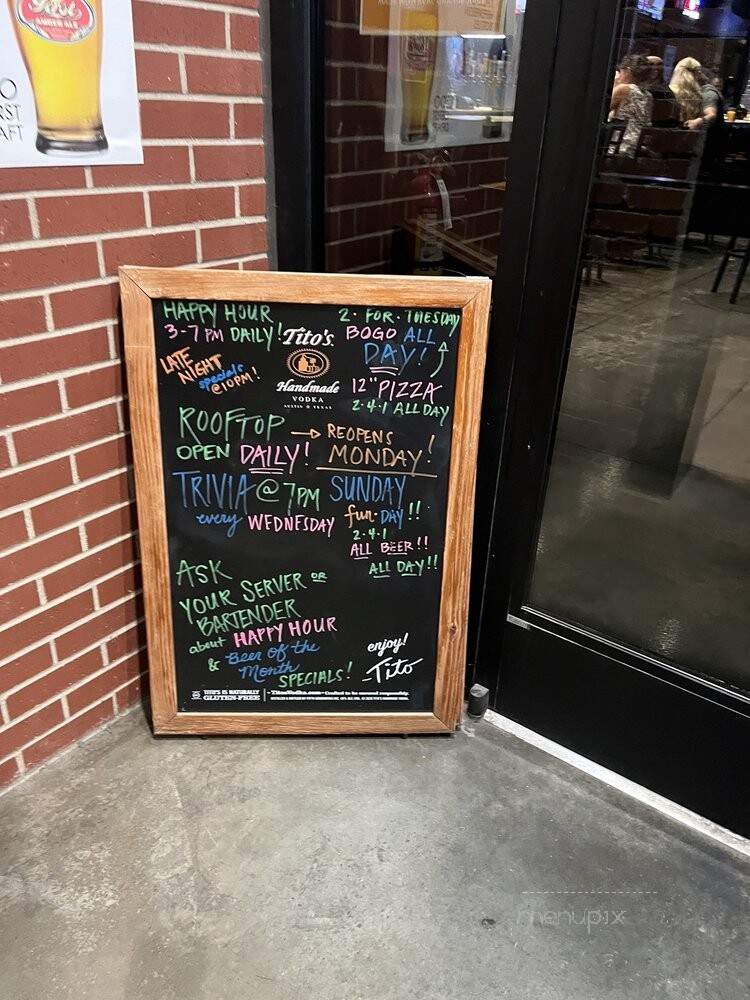 AMBER ALE
HAPPY HOUR
3-7 PM DAILY!
LATE
NIGHT
specials
@10PM!
Tito's
Handmade
VODKA
AUSTIN TEXAS
2 • FOR • TUESDAY
BOGO ALL
DAY!
12" PIZZA
2•4•1 ALL DAY
ROOFTOP
OPEN DAILY!
→ REOPENS
MONDAY!
TRIVIA @ 7PM
every WEDNESDAY
SUNDAY
fun•DAY!!
2•4•1
ALL BEER!!
ALL DAY!!
ASK
YOUR SERVER OR
BARTENDER
about HAPPY HOUR
& Beer of the
Month
SPECIALS!
enjoy!
-Tito
TITO'S IS NATURALLY
GLUTEN-FREE
TitosVodka.com
menupix